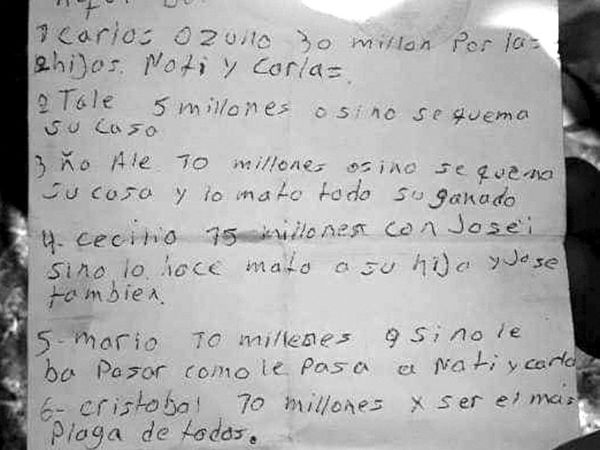 1 Carlos Ozuno 30 millon Por las
2hijas. Nati y Carlas.
2 Tale 5 millones osino se quema
su casa
3 ño Ale 10 millones osino se quema
su casa y lo mato todo su ganado
4- cecilio 15 millones con José i
sino lo hace mato a su hijo y Jose
tambien.
5- mario 10 millenes q sino le
ba Pasar como le Pasa a Nati y carla
6- cristobal 10 millones x ser el mas
Plaga de todos.